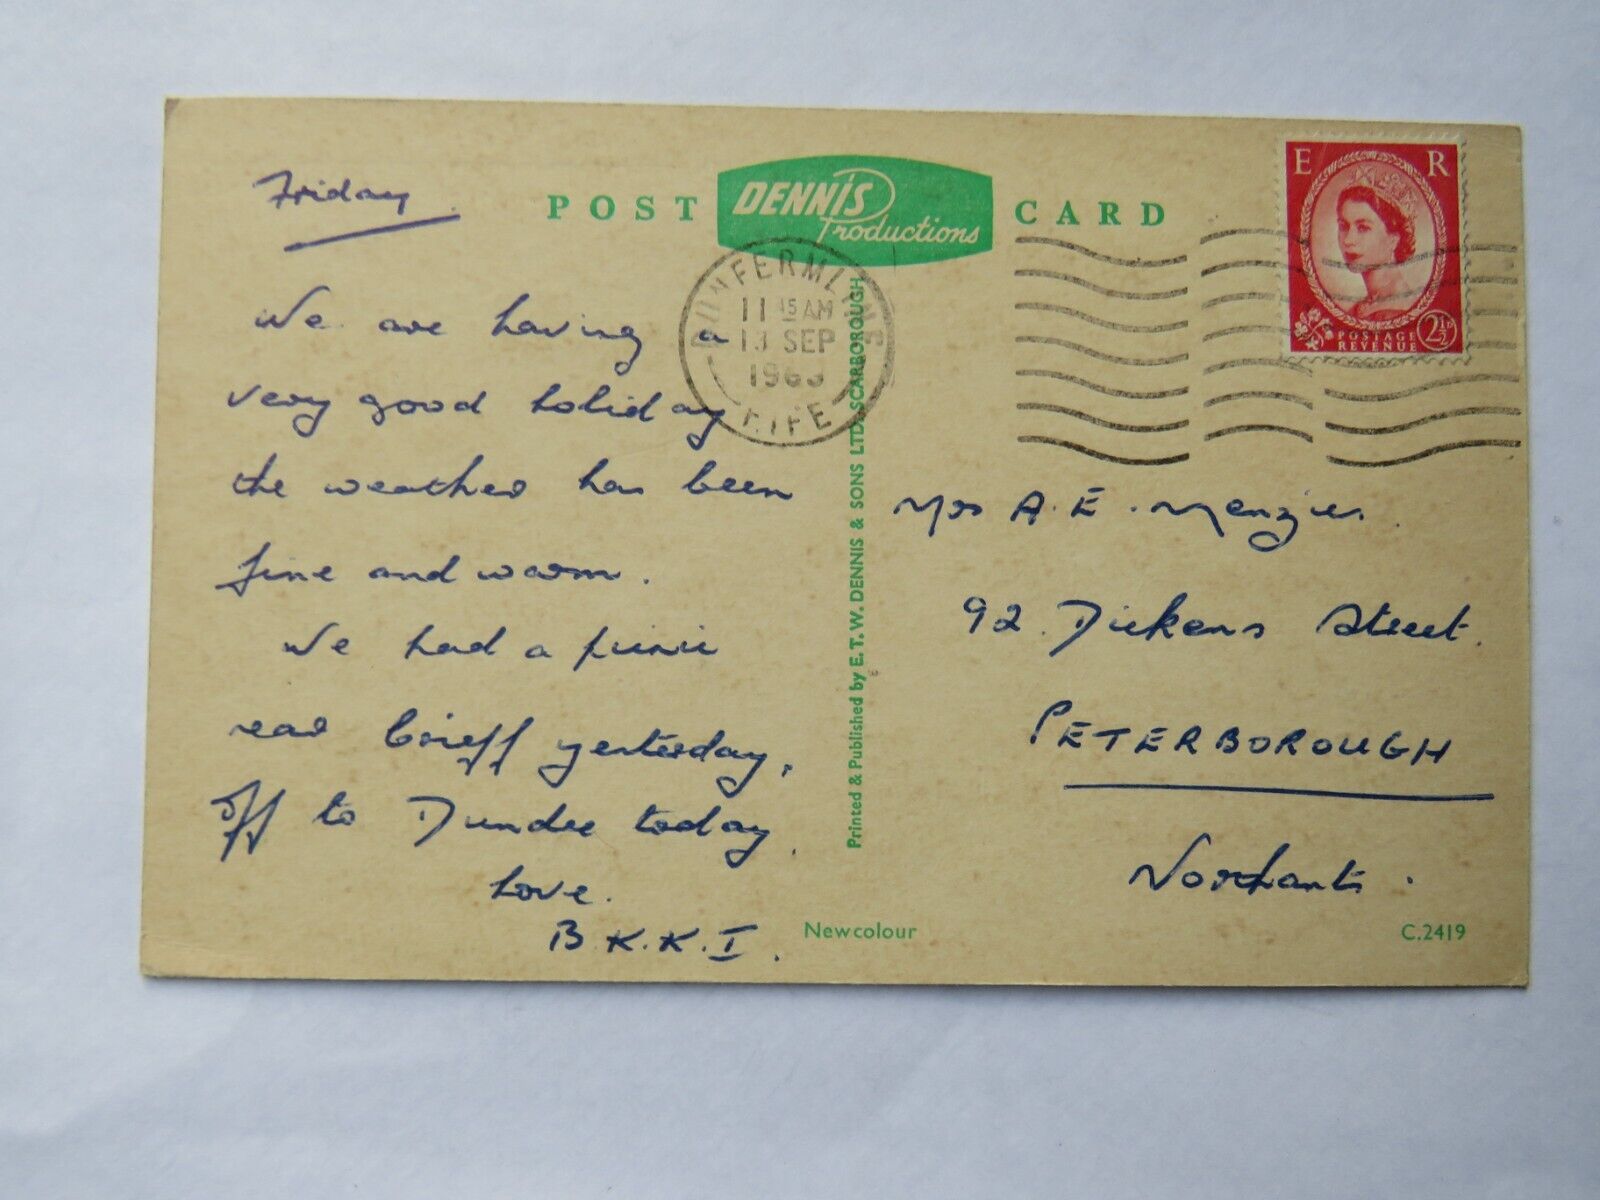 Friday.
We are having a
very good holiday
the weather has been
fine and warm.
We had a picnic
near Crieff yesterday,
off to Dundee today.
Love.
B K. K. I.
POST CARD
DENNIS
Productions
DUNFERMLINE
11 45 AM
13 SEP
1963
FIFE
E R
POSTAGE
REVENUE
2½D
Printed & Published by E.T.W. DENNIS & SONS LTD. SCARBOROUGH
Mrs A. E. Menzies.
92 Dickens Street.
PETERBOROUGH
Northants.
Newcolour
C.2419